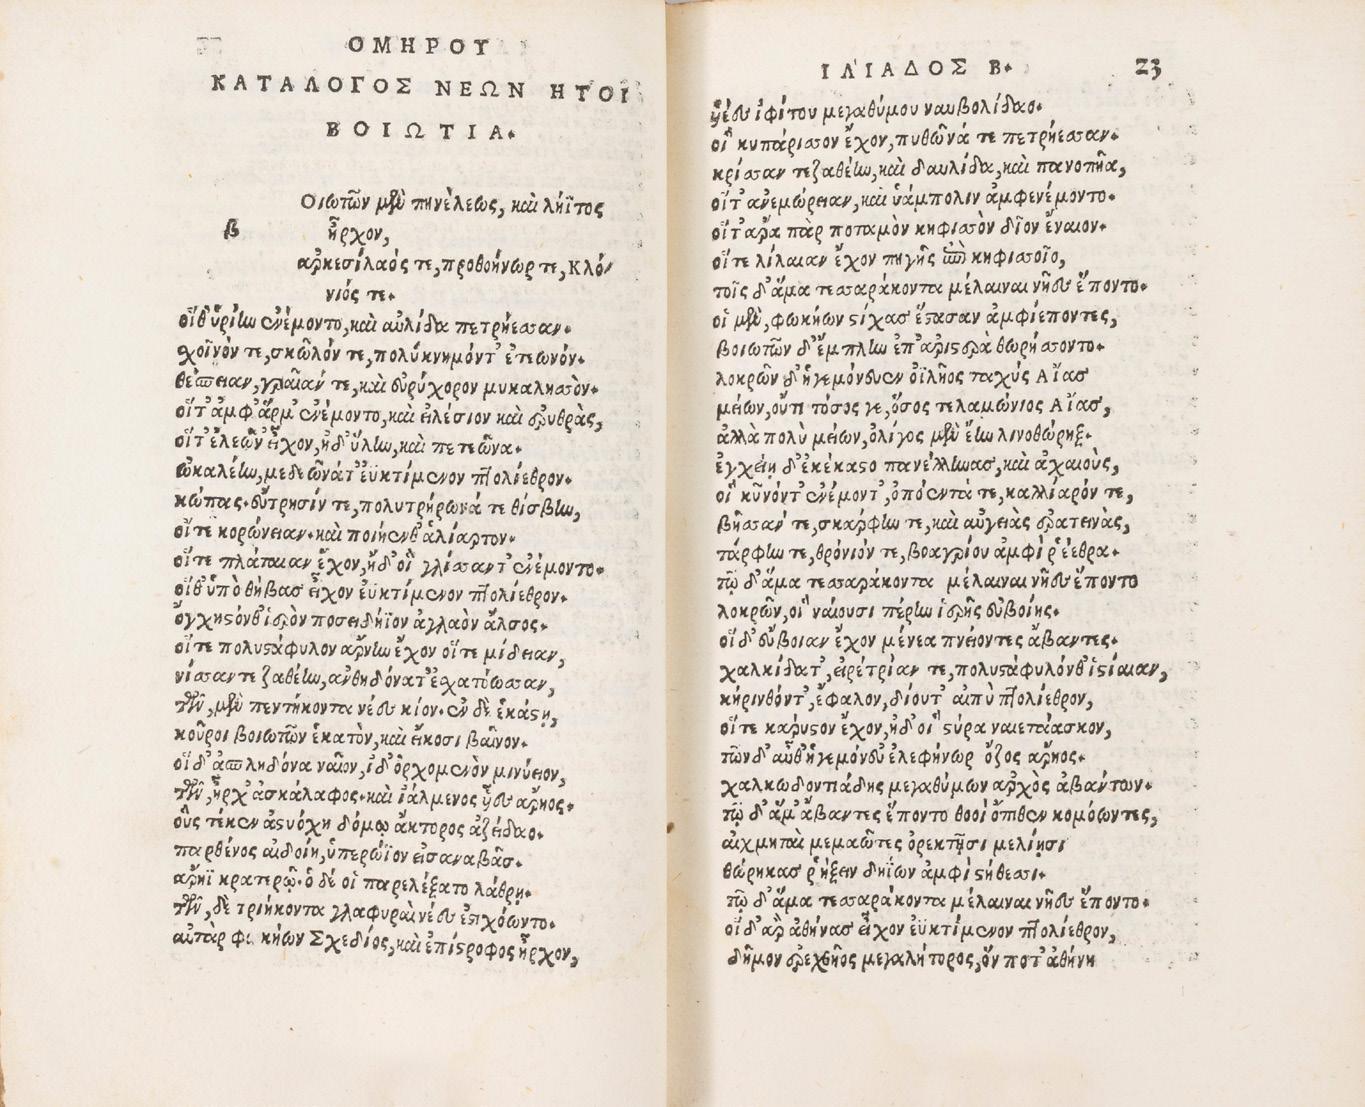 ΟΜΗΡΟΥ
ΚΑΤΑΛΟΓΟΣ ΝΕΩΝ ΗΤΟΙ
ΒΟΙΩΤΙΑ.
β
Οιωτῶν μὲν πηνέλεως, καὶ λήϊτος
ἦρχον,
αρκεσίλαός τε, προθοήνωρ τε, Κλό/
νιός τε.
οἵθ' ὑρίην ἐνέμοντο, καὶ αὐλίδα πετρήεσσαν.
χοῖνόν τε, σκῶλόν τε, πολύκνημόντ' ἐτεωνόν.
θέσπειαν, γραῖάν τε, καὶ εὐρύχορον μυκαλησσόν.
οἵτ' ἀμφ' ἅρμ' ἐνέμοντο, καὶ εἰλέσιον καὶ ἐρυθρὰς,
οἵτ' ἐλεῶν' εἶχον, ἠδ' ὕλην, καὶ πετεῶνα.
ὠκαλέην, μεδεῶνάτ' ἐϋκτίμενον πτολίεθρον.
κώπας. εὔτρησίν τε, πολυτρήρωνά τε θίσβην,
οἵτε κορώνειαν. καὶ ποιήενθ' ἁλίαρτον.
οἵτε πλάταιαν ἔχον, ἠδ' οἳ γλίσαντ' ἐνέμοντο.
οἵθ' ὑπὸ θήβας εἶχον ἐϋκτίμενον πτολίεθρον.
ὄγχηστόνθ' ἱερὸν ποσειδήϊον ἀγλαὸν ἄλσος.
οἵτε πολυστάφυλον ἄρνην ἔχον οἵτε μίδειαν,
νίσσαντε ζαθέην, ανθηδόνατ' ἐσχατόωσαν,
τῶν, μὲν πεντήκοντα νέες κίον. ἐν δὲ ἑκάστῃ,
κοῦροι βοιωτῶν ἑκατὸν, καὶ εἴκοσι βαῖνον.
οἳ δ' ἀσπληδόνα ναῖον, ἰδ' ὀρχομενὸν μινύειον,
τῶν, ἦρχ' ἀσκάλαφος. καὶ ἰάλμενος υἷες ἄρηος.
οὓς τέκεν ἀστυόχη δόμῳ ἄκτορος ἀζείδαο.
παρθένος αἰδοίη, ὑπερώϊον εἰσαναβᾶσ.
αρηϊ κρατερῷ. ὁ δέ οἱ παρελέξατο λάθρη.
τῶν, δὲ τριήκοντα γλαφυραὶ νέες ἐστιχόωντο.
αὐτὰρ φω κήων Σχεδίος, καὶ ἐπίστροφος ἦρχον,
ΙΛΙΑΔΟΣ Β.
23
υἱέες ἰφίτου μεγαθύμου ναυβολίδαο.
οἳ κυπάρισσον ἔχον, πυθῶνά τε πετρήεσσαν.
κρίσσαν τε ζαθέην, καὶ δαυλίδα, καὶ πανοπῆα,
οἵτ' ανεμώρειαν, καὶ ὑάμπολιν ἀμφενέμοντο.
οἵτ' ἄρα πὰρ ποταμὸν κηφισσὸν δῖον ἔναιον.
οἵτε λίλαιαν ἔχον πηγῆς ἐπὶ κηφισσοῖο,
τοῖς δ' ἅμα τεσσαράκοντα μέλαιναι νῆες ἕποντο.
οἱ μὲν, φωκήων στίχας ἵστασαν ἀμφιέποντες,
βοιωτῶν δ' ἔμπλην ἐπ' ἀριστερὰ θωρήσσοντο.
λοκρῶν δ' ἡγεμόνευεν ὀϊλῆος ταχύς Αἴας
μείων, οὔτι τόσος γε, ὅσος τελαμώνιος Αἴας,
ἀλλὰ πολὺ μείων, ὀλίγος μὲν ἔην λινοθώρηξ.
ἐγχείῃ δ' ἐκέκαστο πανέλληνας, καὶ ἀχαιούς,
οἳ κῦνόντ' ἐνέμοντ', ὀπόεντά τε, καλλίαρόν τε,
βῆσσάν τε, σκάρφην τε, καὶ αὐγειὰς ἐρατεινὰς,
τάρφην τε, θρόνιόν τε, βοαγρίου ἀμφὶ ῥέεθρα.
τῷ δ' ἅμα τεσσαράκοντα μέλαιναι νῆες ἕποντο
λοκρῶν, οἳ ναίουσι πέρην ἱερῆς εὐβοίης.
οἳ δ' εὔβοιαν ἔχον μένεα πνείοντες ἄβαντες.
χαλκίδατ', εἰρέτριάν τε, πολυστάφυλόνθ' ἱστίαιαν,
κήρινθόντ', ἔφαλον, δίουτ' αἰπὺ πτολίεθρον,
οἵτε κάρυστον ἔχον, ἠδ' οἳ στύρα ναιετάασκον,
τῶν δ' αὖθ' ἡγεμόνευ' ἐλεφήνωρ ὄζος ἄρηος.
χαλκωδοντιάδης μεγαθύμων ἀρχὸς ἀβάντων.
τῷ δ' ἅμ' ἄβαντες ἕποντο θοοὶ ὄπιθεν κομόωντες,
αἰχμηταὶ μεμαῶτες ὀρεκτῇσι μελίῃσι
θώρηκας ῥήξειν δηΐων ἀμφὶ στήθεσι.
τῷ δ' ἅμα τεσσαράκοντα μέλαιναι νῆες ἕποντο.
οἳ δ' ἄρ' ἀθήνας εἶχον ἐϋκτίμενον πτολίεθρον,
δῆμον ἐρεχθῆος μεγαλήτορος, ὅν ποτ' ἀθήνη